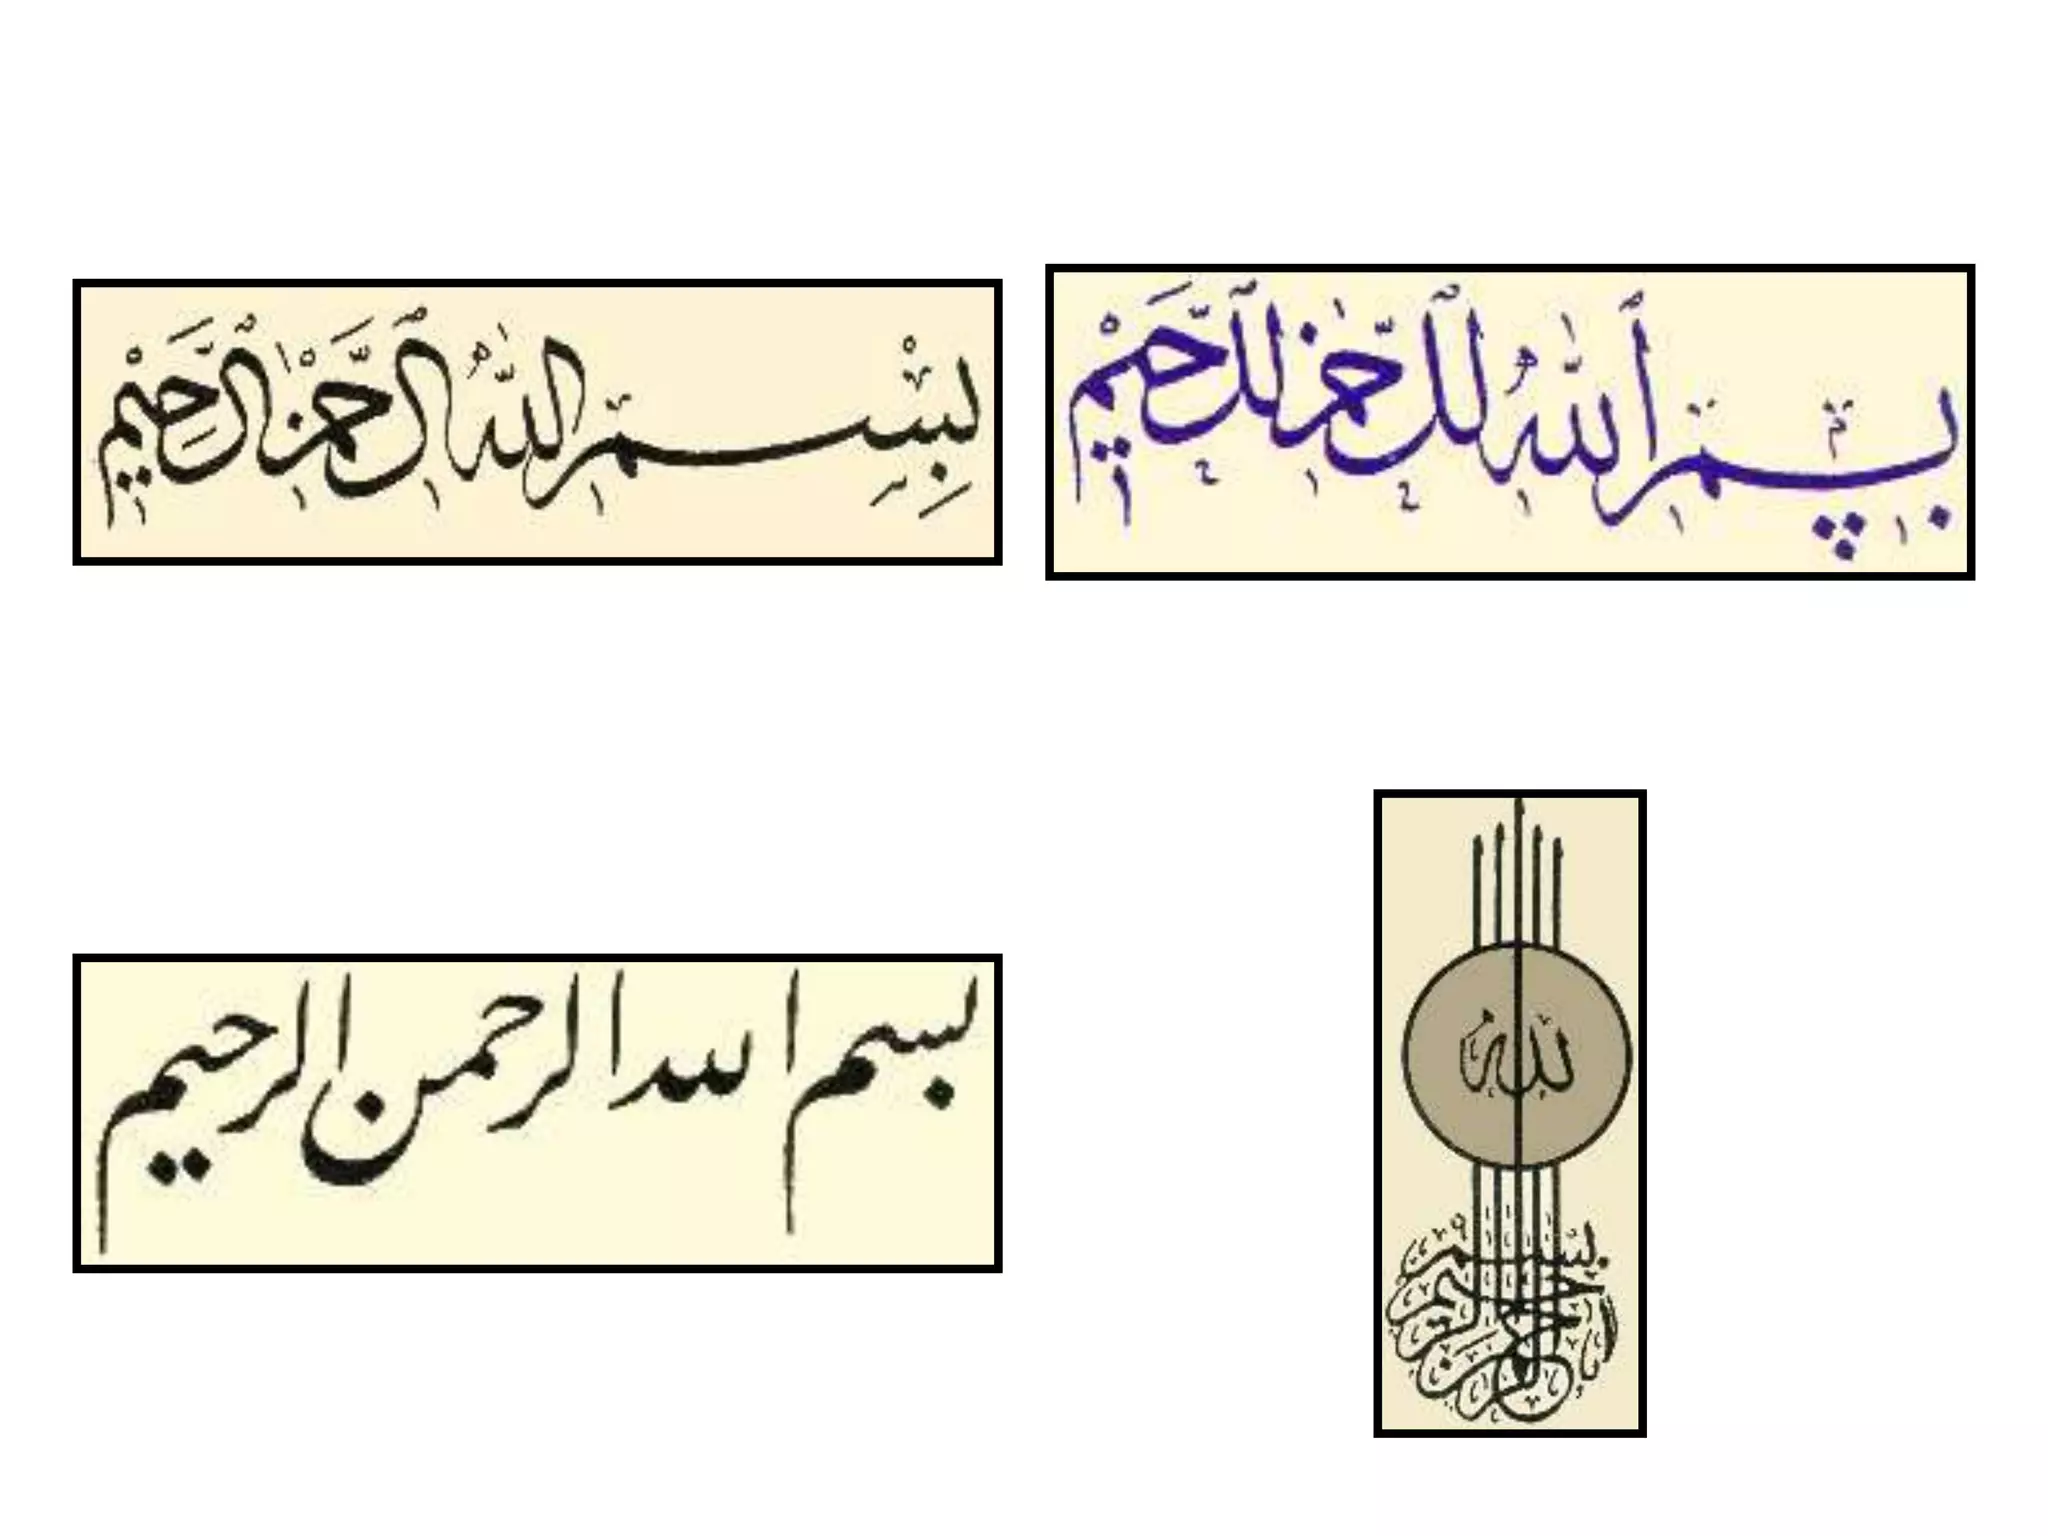 بِسْمِ اللَّهِ الرَّحْمَٰنِ الرَّحِيمِ
بسم اللَّهِ الرَّحْمَٰنِ الرَّحِيمِ
بسم الله الرحمن الرحيم
الله
بسم
الرحمن الرحيم